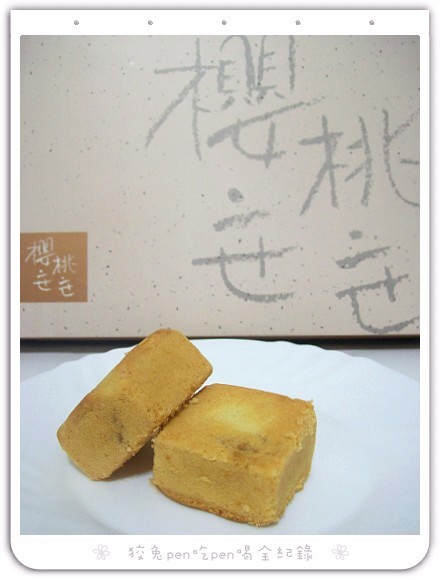 櫻桃
㐂㐂
櫻桃
㐂㐂
狡兔pen吃pen喝全紀錄